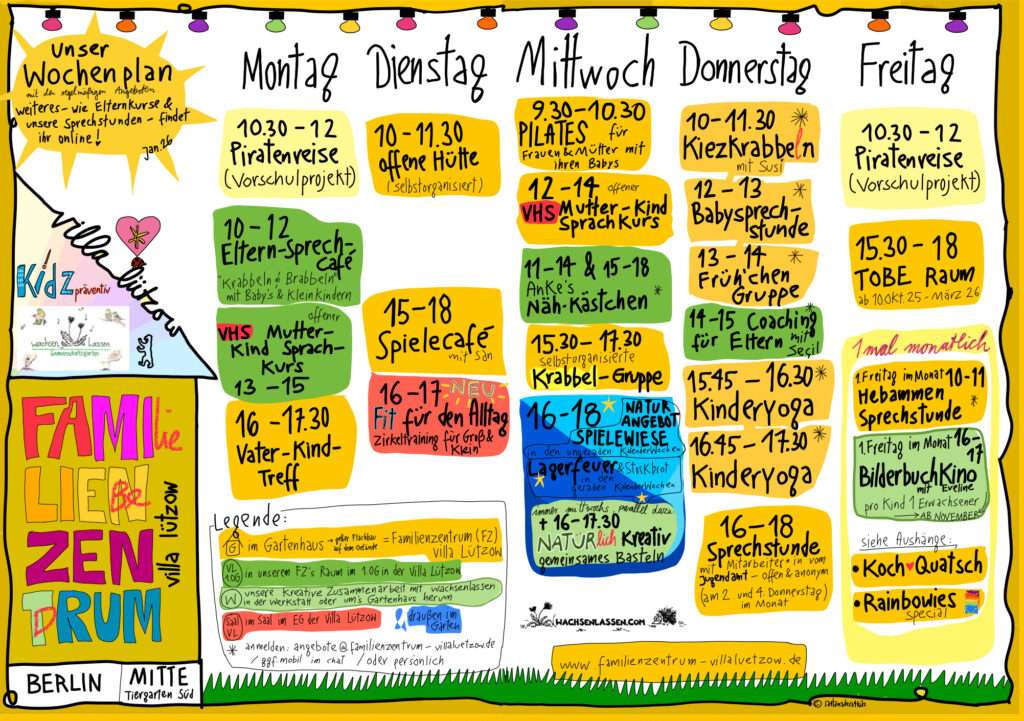 Unser
Wochenplan
mit den regelmäßigen Angeboten
weiteres - wie Elternkurse &
unsere Sprechstunden - findet
ihr online!
jan.26
villa lützow
Kidz
präventiv
wachsen Lassen
Gemeinschaftsgarten
FAMILIE
LIEN BE
ZEN
TRUM
villa lützow
BERLIN
MITTE
Tiergarten Süd
Montag
10.30 - 12
Piratenreise
(Vorschulprojekt)
10 - 12
Eltern-Sprech-
Café
"Krabbeln & Brabbeln"
mit Baby's & Kleinkindern
offener
VHS Mutter-
Kind Sprach-
Kurs
13 - 15
16 - 17.30
Vater-Kind-
Treff
Dienstag
10 - 11.30
offene Hütte
(selbstorganisiert)
15 - 18
Spielecafé
mit San
16 - 17 NEU
Fit für den Alltag
Zirkeltraining für Groß &
Klein
Mittwoch
9.30 - 10.30
PILATES für
Frauen & Mütter mit
ihren Babys
12 - 14 offener
VHS Mutter-Kind
Sprachkurs
11 - 14 & 15 - 18
Anke's
Näh-Kästchen *
15.30 - 17.30
selbstorganisierte
Krabbel-Gruppe
16 - 18 NATUR
ANGEBOT
SPIELEWIESE
in den ungeraden Kalenderwochen
Lagerfeuer & Stockbrot
in den
geraden Kalenderwochen
immer mittwochs parallel dazu:
+ 16 - 17.30
NATÜRlich Kreativ
gemeinsames Basteln
WACHSENLASSEN.COM
Donnerstag
10 - 11.30 *
Kiezkrabbeln
mit Susi
12 - 13 *
Babysprech-
stunde
13 - 14
Früh'chen
Gruppe
14 - 15 Coaching *
für Eltern mit
Seçil
15.45 - 16.30 *
Kinderyoga
16.45 - 17.30 *
Kinderyoga
16 - 18
Sprechstunde
mit Mitarbeiter*in vom
Jugendamt - offen & anonym
(am 2. und 4. Donnerstag)
im Monat
Freitag
10.30 - 12
Piratenreise
(Vorschulprojekt)
15.30 - 18
TOBE Raum
ab 10.Okt.25 - März 26
1 mal monatlich
1.Freitag im Monat 10-11
Hebammen
Sprechstunde *
1.Freitag im Monat 16-
17
BilderbuchKino
mit Eveline
pro Kind 1 Erwachsener
→ AB NOVEMBER
siehe Aushänge:
• Koch♥Quatsch
• Rainbowies
special
Legende:
G im Gartenhaus → gelber Flachbau auf dem Gelände = Familienzentrum (FZ)
villa Lützow
VL 1.OG in unserem FZ's Raum im 1.OG in der Villa Lützow
W unsere Kreative Zusammenarbeit mit wachsenlassen
in der Werkstatt oder um's Gartenhaus herum
Saal VL im Saal im EG der Villa Lützow
draußen im
Garten
* anmelden: angebote@familienzentrum-villaluetzow.de
/ ggf. mobil im chat / oder persönlich
www.familienzentrum-villaluetzow.de